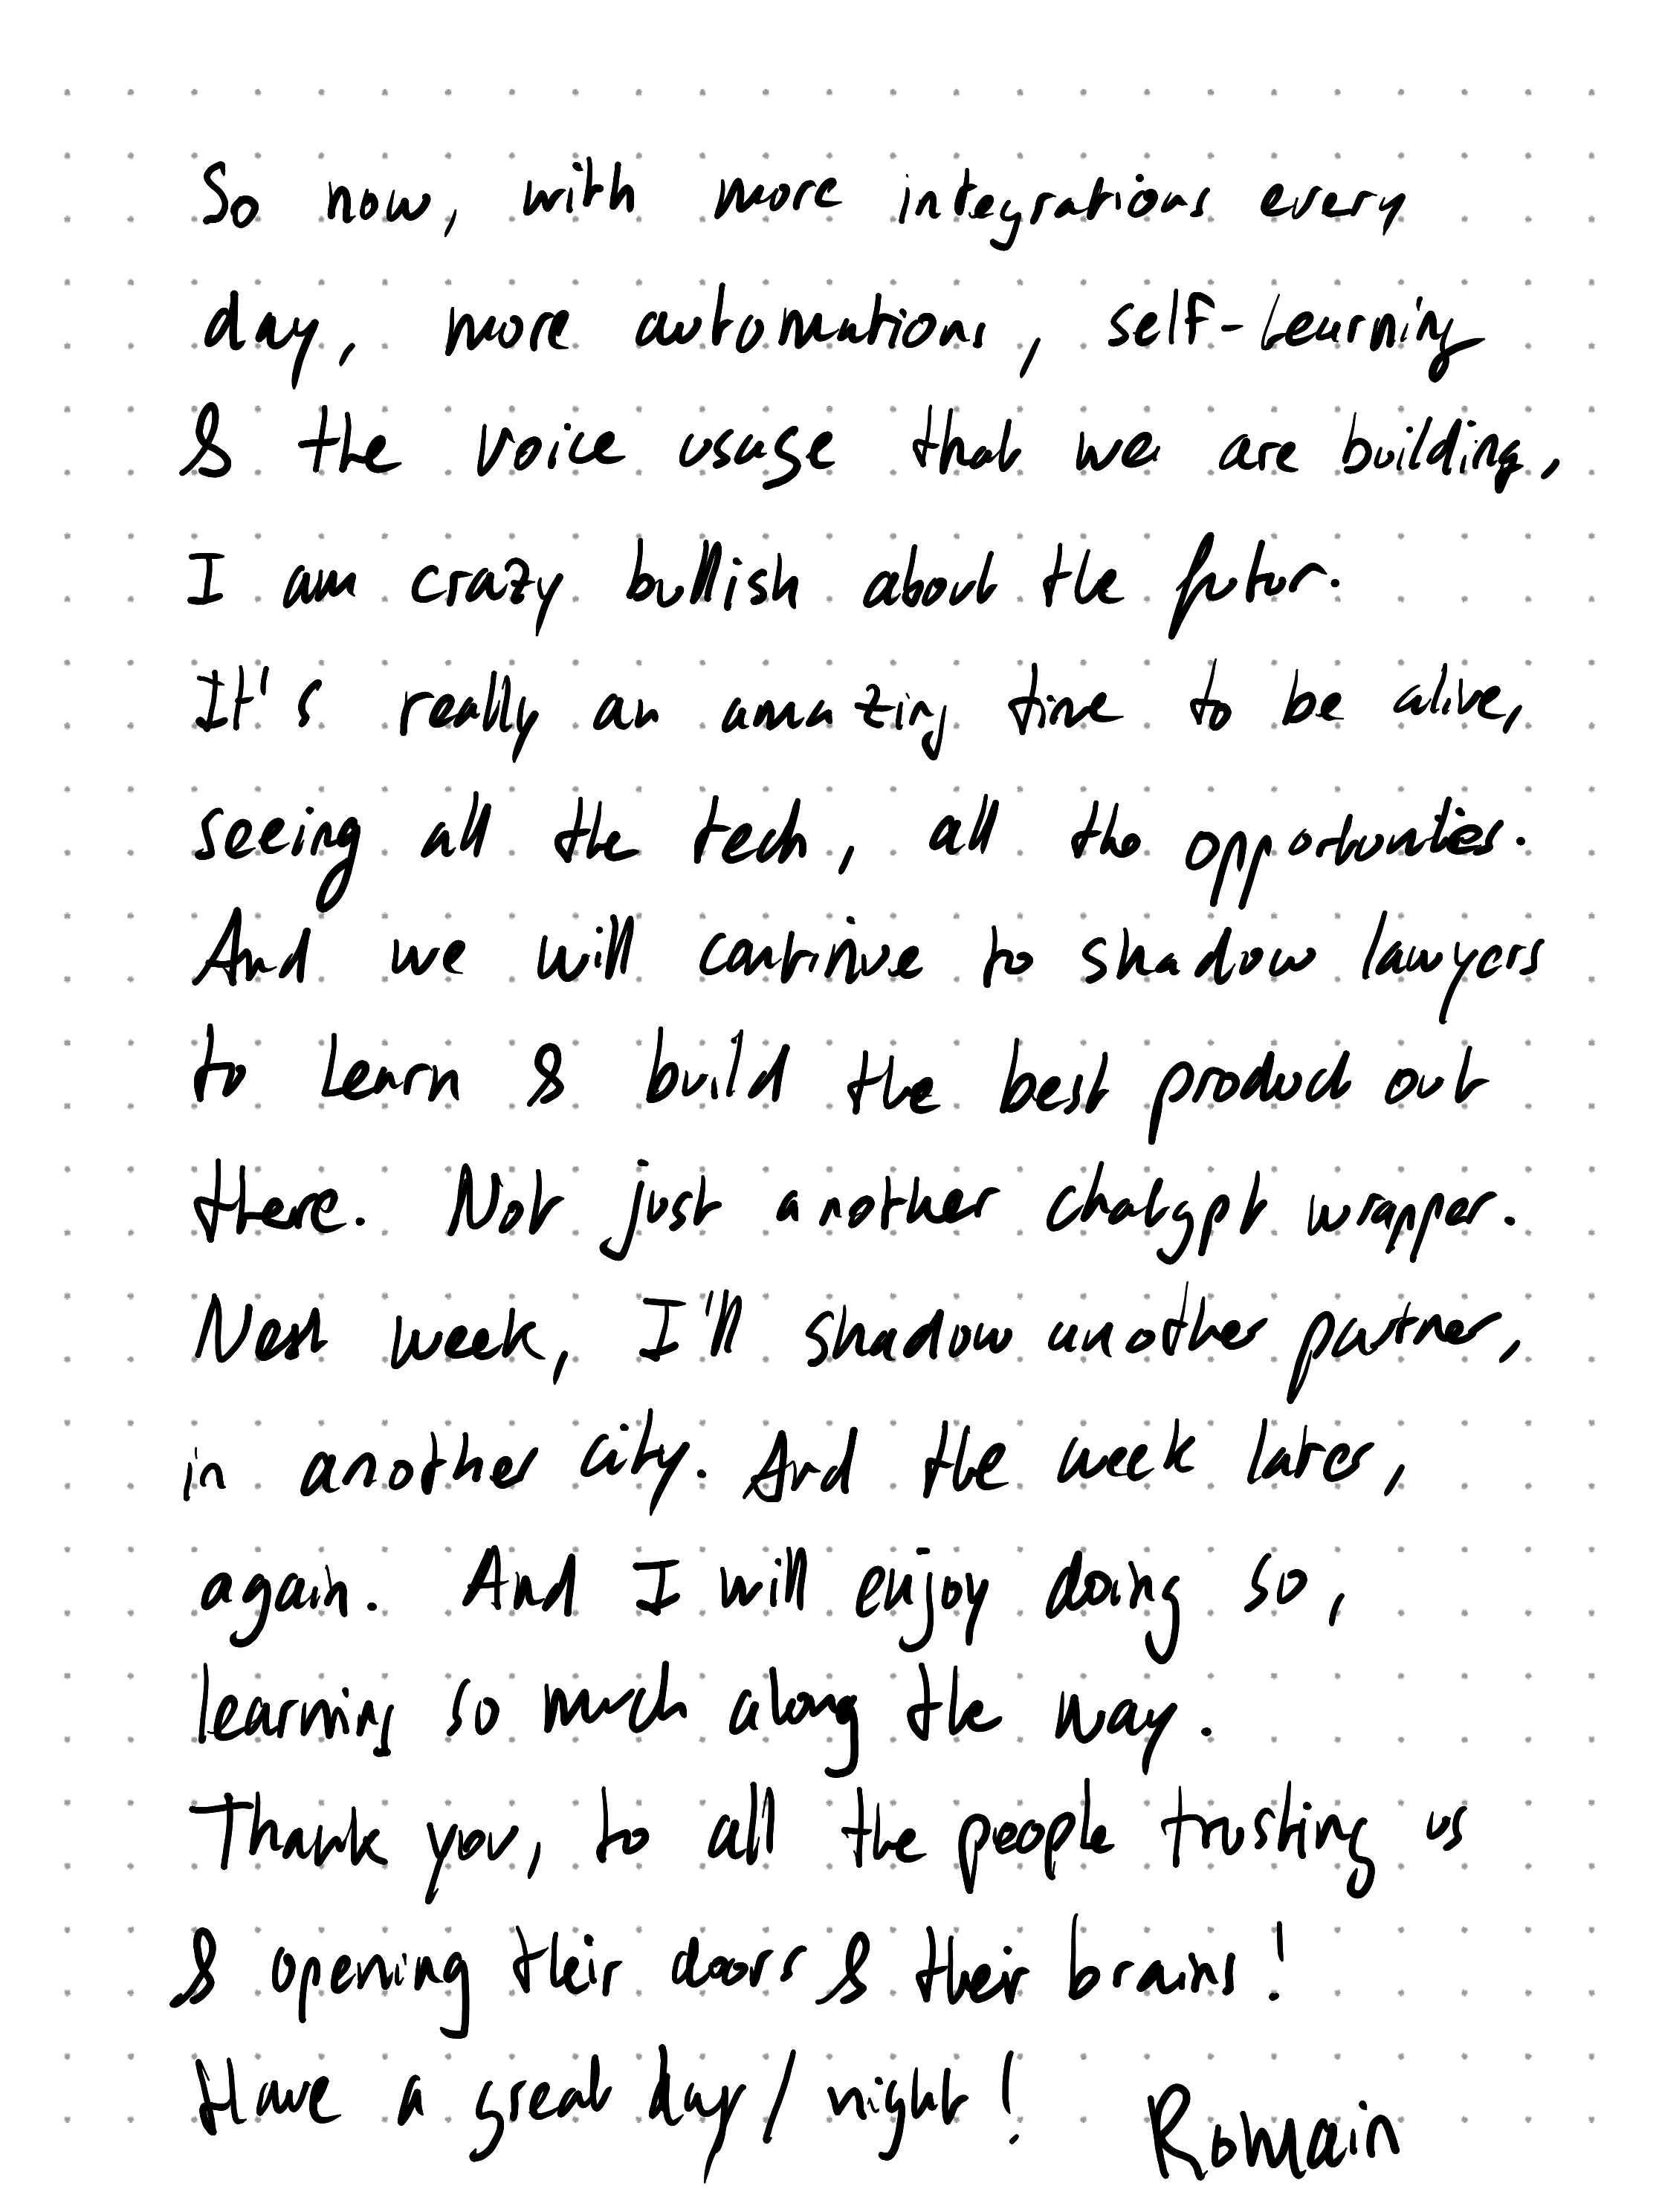 So now, with more integrations every
day, more automations, self-learning
& the voice usage that we are building,
I am crazy bullish about the futur.
It's really an amazing time to be alive,
seeing all the tech, all the opportunties.
And we will continue to shadow lawyers
to learn & build the best product out
there. Not just another chatgpt wrapper.
Next week, I'll shadow another partner,
in another city. And the week later,
again. And I will enjoy doing so,
learning so much along the way.
Thank you, to all the people trusting us
& opening their doors & their brains!
Have a great day/night! Romain